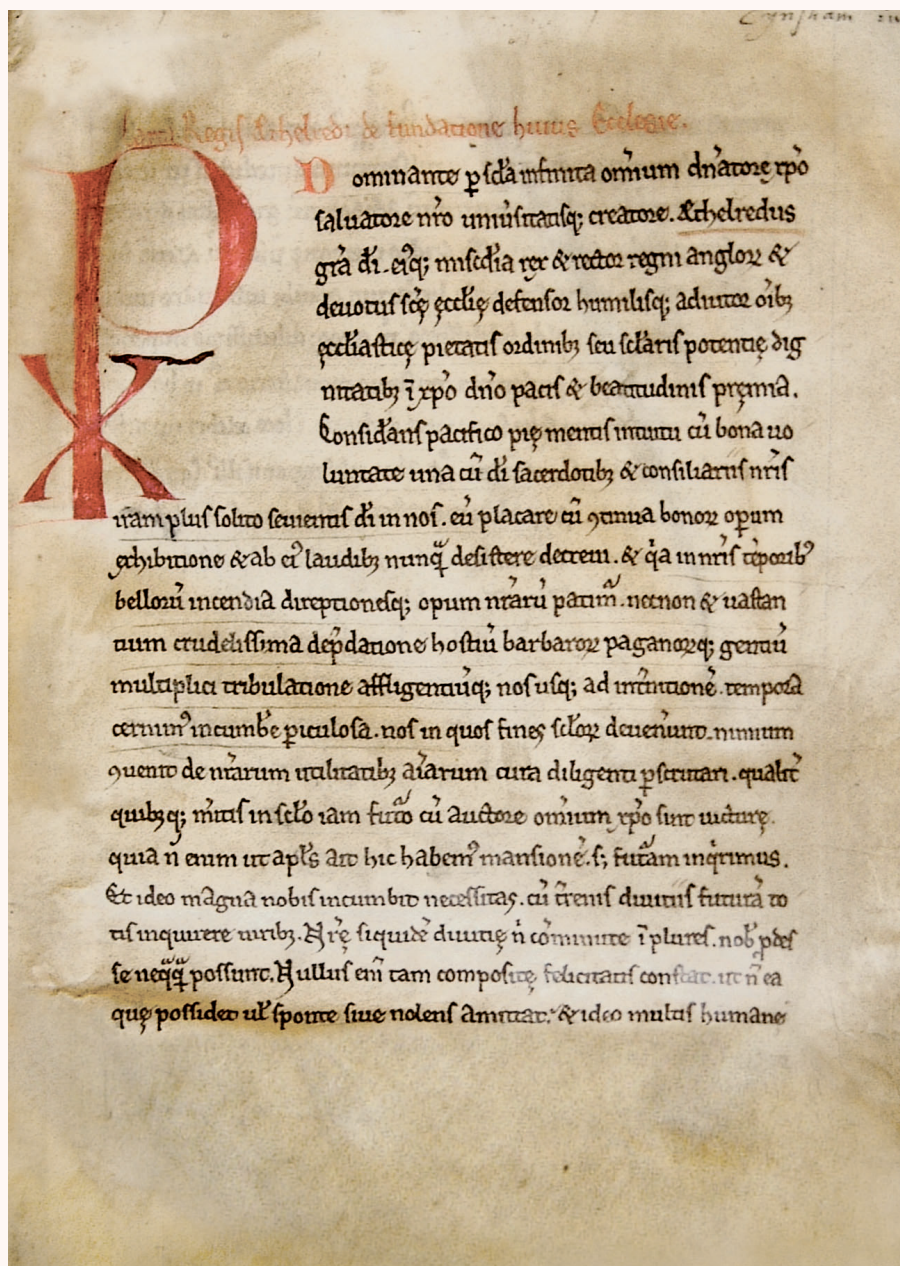 Eynsham
Regis Æthelredi de fundatione huius Ecclesie.
Dominante ꝑ sc̄la infinita om̄ium dn̄atore xp̄o
saluatore nr̄o uniuˀsitatisq; creatore. Æthelredus
gr̄a dī. eiꝰq; misc̄dia rex & rector regni angloꝝ &
deuotus sc̄ę ęccl̄ię defensor humilisq; adiutor oīb;
ęccl̄iasticę pietatis ordinib; seu sc̄laris potentię dig
nitatib; ī xp̄o dn̄o pacis & beatitudinis pręmia.
Considˀans pacifico pię mentis intuitu cū bona uo
luntate una cū dī sacerdotib; & consiliariis nr̄is
iram plus solito seuientis dī in nos. eū placare cū ꝯtinua bonoꝝ oꝑum
exhibitione & ab eiꝰ laudib; nunq̄ desistere decreui. & q̇a in nr̄is tēporibꝰ
bellorū incendia direptionesq; opum nr̄arū patimˀ. necnon & uastan
tium crudelissima dep̄datione hostiū barbaroꝝ paganoꝝq; gentiū
multiplici tribulatione affligentiūq; nos usq; ad int̄nitionē. tempora
cernimꝰ incumbˀe ꝑiculosa. nos in quos fines sc̄loꝝ deuenˀunt. nimium
ꝯuenit de nr̄arum utilitatib; aīarum cura diligenti ꝑscrutari. qualit̄
quib;q; mˀitis in sc̄lo iam fut̄o cū auctore om̄ium xp̄o sint uicturę.
quia n̄ enim ut apl̄s ait hic habemꝰ mansionē. s; fut̄am inq̇rimus.
Et ideo magna nobis incumbit necessitas. cū t̄renis diuitiis futurā to
tis inquirere uirib;. Nr̄ę siquidē diuitię n̄ cōmunite ī plures. nob̄ ꝓdes
se neq̄q̄ possunt. Nullus enī tam compositę felicitatis constat. ut n̄ ea
quę possidet ul̄ sponte siue nolens amittat. & ideo multis humane